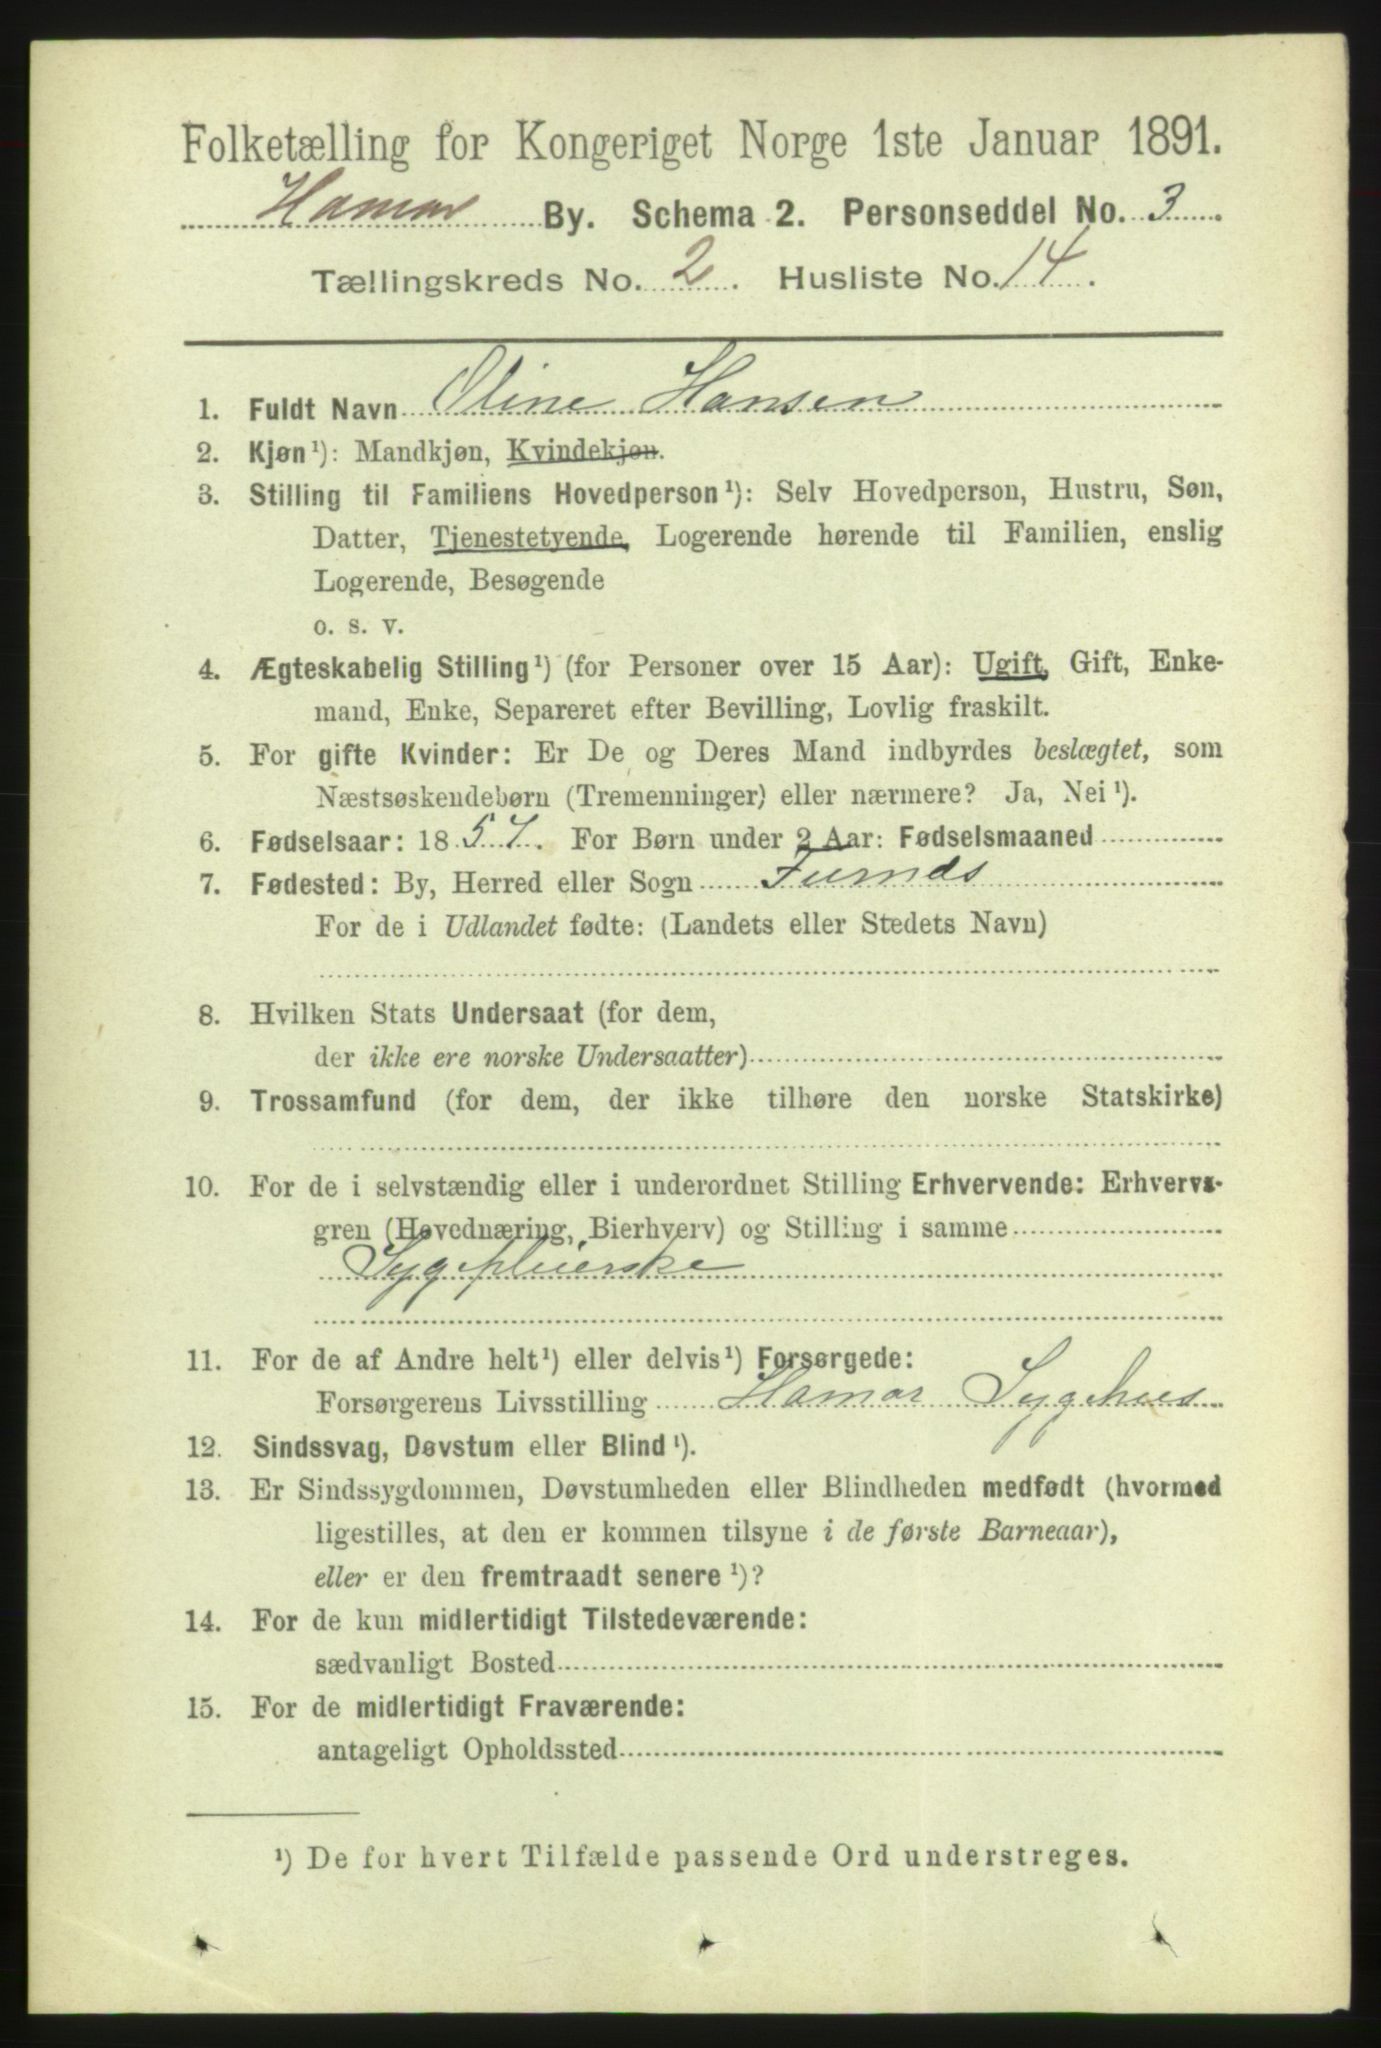 Folketælling for Kongeriget Norge 1ste Januar 1891.
Hamar By. Schema 2. Personseddel No. 3.
Tællingskreds No. 2. Husliste No. 14.
1. Fuldt Navn Oline Hansen
2. Kjøn¹): Mandkjøn, Kvindekjøn.
3. Stilling til Familiens Hovedperson¹): Selv Hovedperson, Hustru, Søn,
Datter, Tjenestetyende, Logerende hørende til Familien, enslig
Logerende, Besøgende
o. s. v.
4. Ægteskabelig Stilling¹) (for Personer over 15 Aar): Ugift, Gift, Enke-
mand, Enke, Separeret efter Bevilling, Lovlig fraskilt.
5. For gifte Kvinder: Er De og Deres Mand indbyrdes beslægtet, som
Næstsøskendebørn (Tremenninger) eller nærmere? Ja, Nei¹).
6. Fødselsaar: 1857. For Børn under 2 Aar: Fødselsmaaned
7. Fødested: By, Herred eller Sogn Furnæs
For de i Udlandet fødte: (Landets eller Stedets Navn)
8. Hvilken Stats Undersaat (for dem,
der ikke ere norske Undersaatter)
9. Trossamfund (for dem, der ikke tilhøre den norske Statskirke)
10. For de i selvstændig eller i underordnet Stilling Erhvervende: Erhvervs-
gren (Hovednæring, Bierhverv) og Stilling i samme
Sygepleierske
11. For de af Andre helt¹) eller delvis¹) Forsørgede:
Forsørgerens Livsstilling Hamar Sygehus
12. Sindssvag, Døvstum eller Blind¹).
13. Er Sindssygdommen, Døvstumheden eller Blindheden medfødt (hvormed
ligestilles, at den er kommen tilsyne i de første Barneaar),
eller er den fremtraadt senere¹)?
14. For de kun midlertidigt Tilstedeværende:
sædvanligt Bosted
15. For de midlertidigt Fraværende:
antageligt Opholdssted
¹) De for hvert Tilfælde passende Ord understreges.